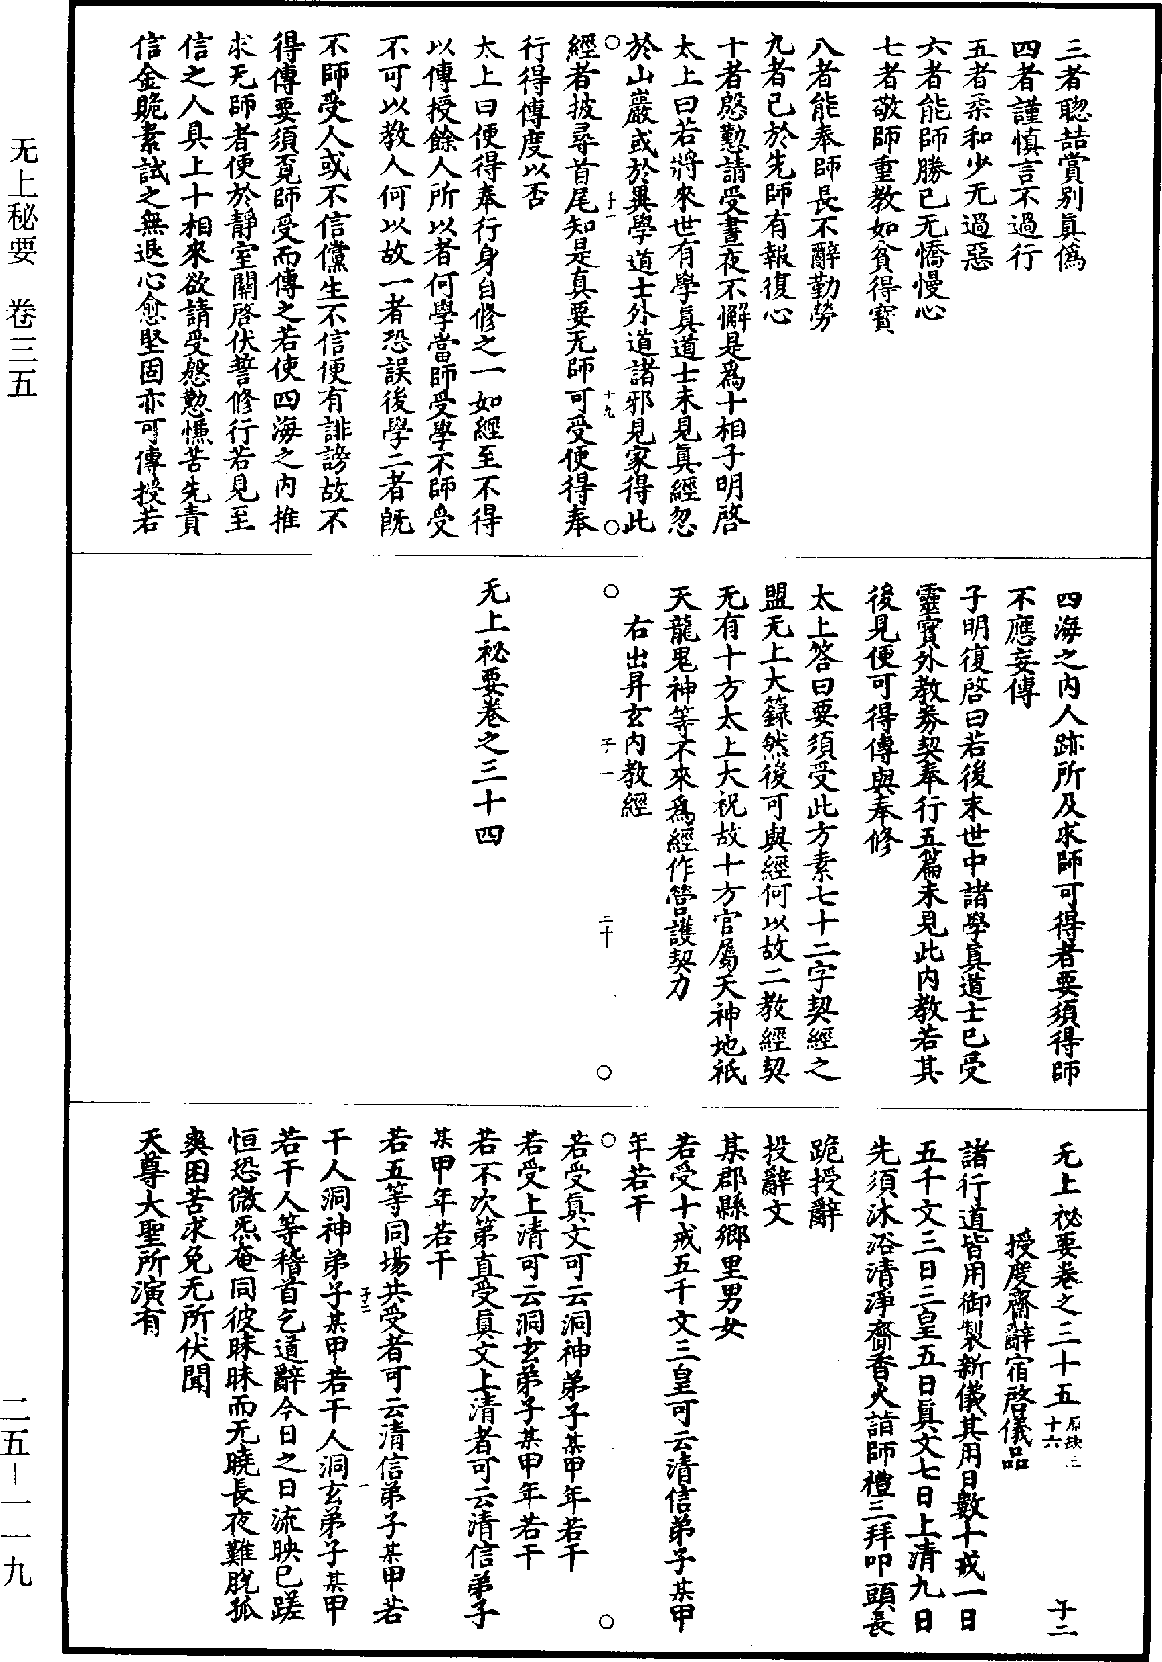 三者聰喆賞别真僞
四者謹慎言不過行
五者柔和少无過惡
六者能師勝己无憍慢心
七者敬師重教如貧得寶
八者能奉師長不辭勤勞
九者已於先師有報復心
十者慇懃請受晝夜不懈是爲十相子明啓
太上曰若將來世有學真道士未見真經忽
於山巖或於異學道士外道諸邪見家得此
子一
十九
經者披尋首尾知是真要无師可受便得奉
行得傳度以否
太上曰便得奉行身自修之一如經至不得
以傳授餘人所以者何學當師受學不師受
不可以教人何以故一者恐誤後學二者既
不師受人或不信儻生不信便有誹謗故不
得傳要須覓師受而傳之若使四海之内推
求无師者便於靜室關啓伏誓修行若見至
信之人具上十相來欲請受慇懃憔苦先責
信金脆素試之無退心愈堅固亦可傳授若
四海之内人跡所及求師可得者要須得師
不應妄傳
子明復啓曰若後末世中諸學真道士已受
靈寶外教券契奉行五篇未見此内教若其
後見便可得傳與奉修
太上答曰要須受此方素七十二字契經之
盟无上大籙然後可與經何以故二教經契
无有十方太上大祝故十方官屬天神地祇
天龍鬼神等不來爲經作營護契力
右出昇玄内教經
子一
二十
无上祕要卷之三十四
无上祕要卷之三十五
原缺三十六
午二
授度齋辭宿啓儀品
諸行道皆用御製新儀其用日數十戒一日
五千文三日三皇五日真文七日上清九日
先須沐浴清淨齎香火詣師禮三拜叩頭長
跪授辭
投辭文
某郡縣鄉里男女
若受十戒五千文三皇可云清信弟子某甲
年若干
若受真文可云洞神弟子某甲年若干
若受上清可云洞玄弟子某甲年若干
若不次第直受真文上清者可云清信弟子
某甲年若干
若五等同場共受者可云清信弟子某甲若
子二
一
干人洞神弟子某甲若干人洞玄弟子某甲
若干人等稽首乞道辭今日之日流映已蹉
恒恐微炁奄同彼昧昧而无曉長夜難脫孤
爽困苦求免无所伏聞
天尊大聖所演有
无上秘要　卷三五
二五－一一九